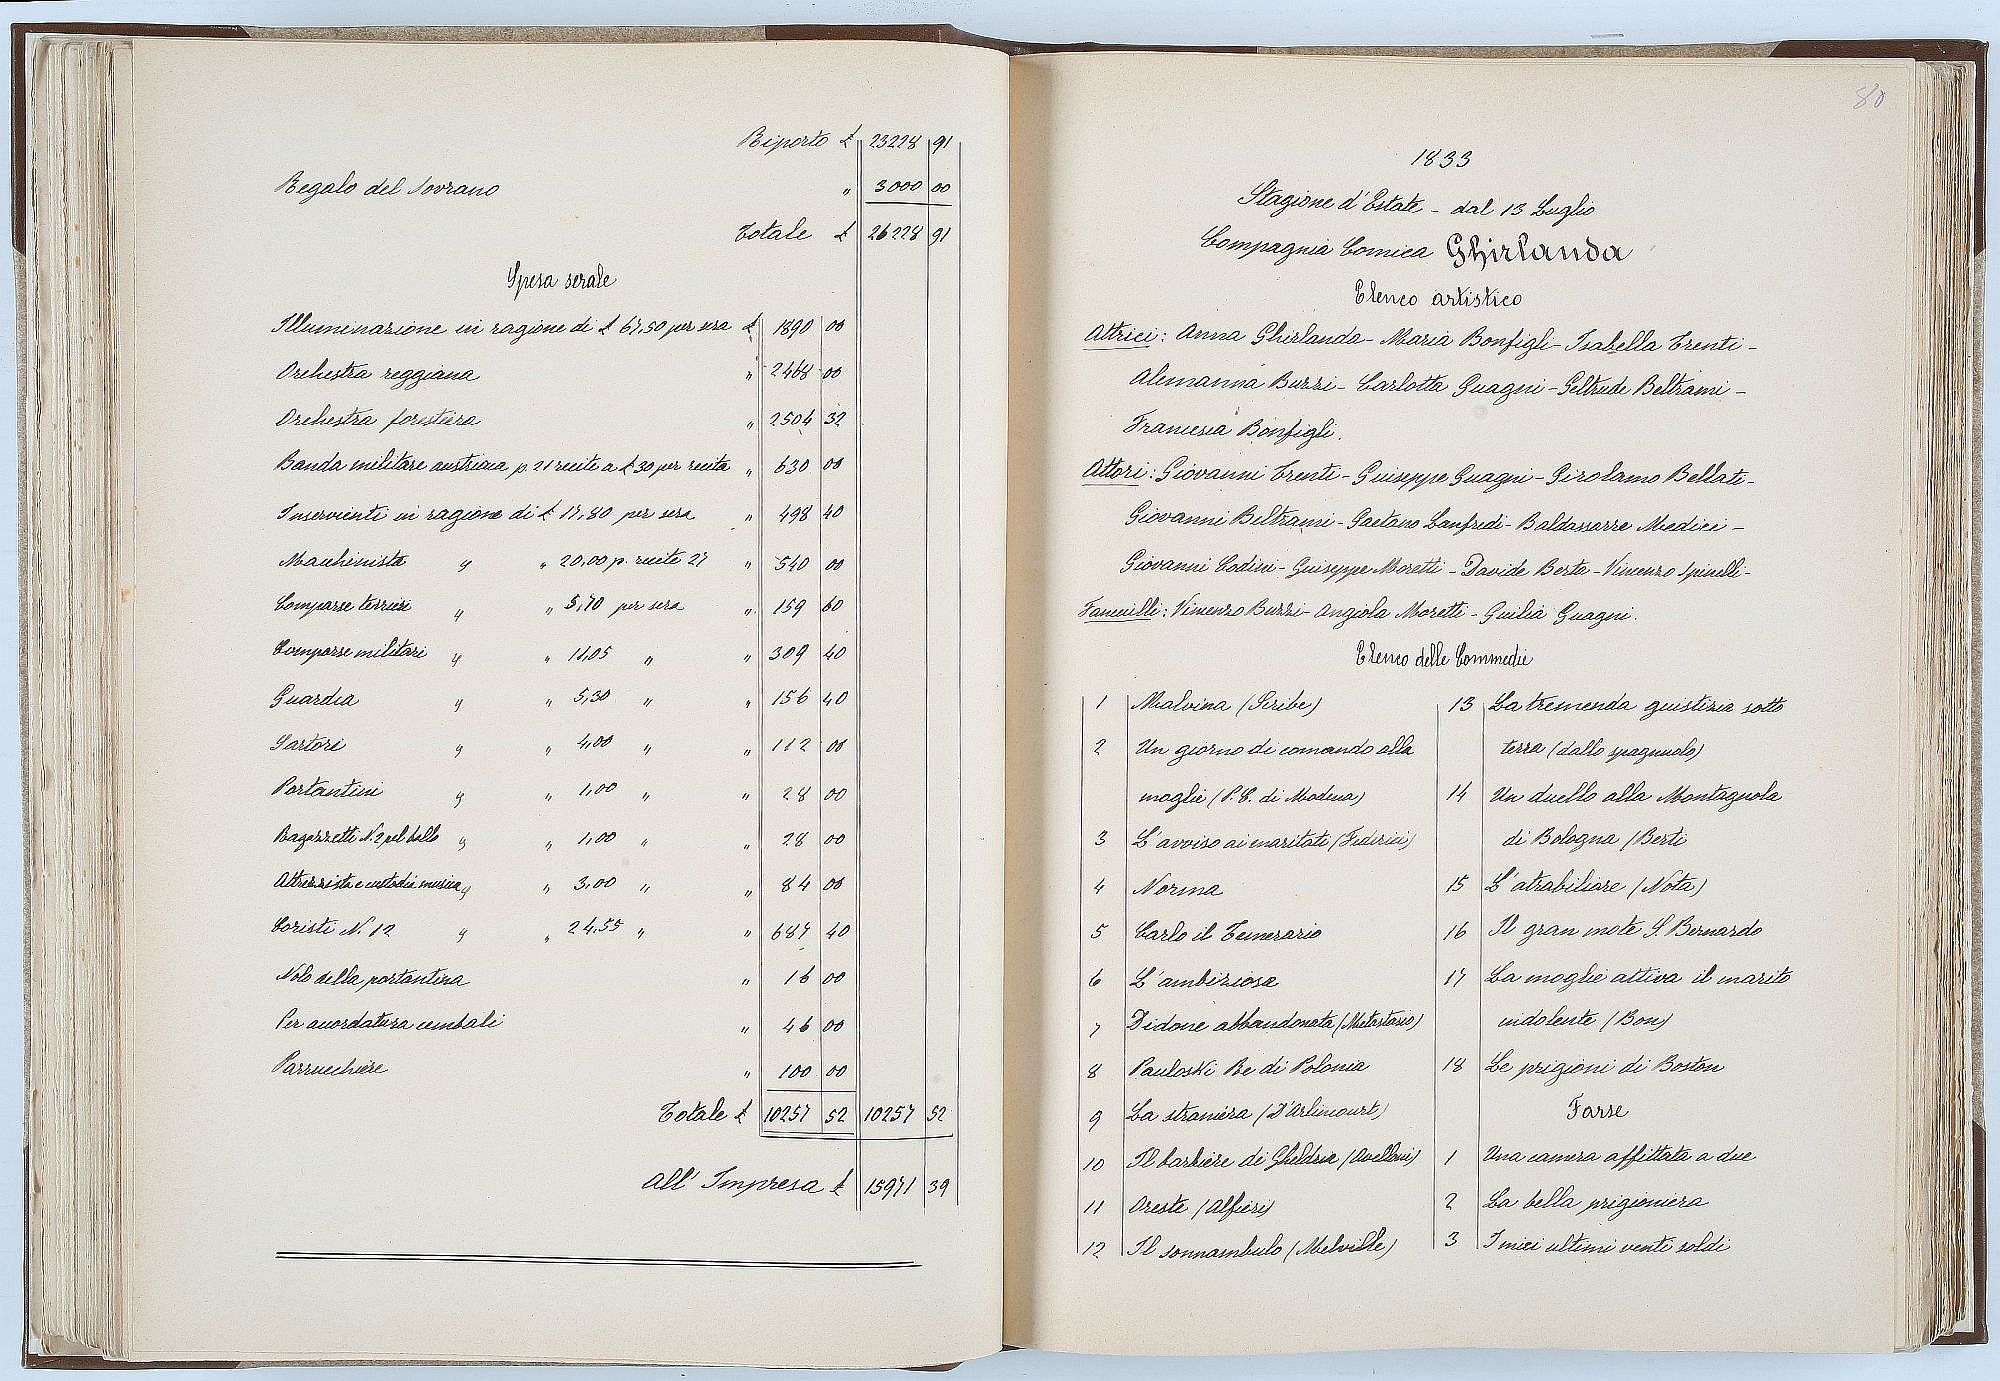 Riporto £ 23228 91
Regalo del Sovrano " 3000 00
Totale £ 26228 91
Spesa serale
Illuminazione in ragione di £ 67,50 per sera £ 1890 00
Orchestra reggiana " 2468 00
Orchestra forestiera " 2504 32
Banda militare austriaca p. 21 recite a £ 30 per recita " 630 00
Inservienti in ragione di £ 17,80 per sera " 498 40
Macchinista " " 20,00 p. recite 27 " 540 00
Comparse terrieri " " 5,70 per sera " 159 60
Comparse militari " " 11,05 " " 309 40
Guardia " " 5,30 " " 156 40
Sartori " " 4,00 " " 112 00
Portantini " " 1,00 " " 28 00
Ragazzetti N. 2 pel ballo " " 1,00 " " 28 00
Attrezzista e custodia musica " " 3,00 " " 84 00
Coristi N. 12 " " 24,55 " " 687 40
Nolo della portantina " 16 00
Per acordatura cembali " 46 00
Parrucchiere " 100 00
Totale £ 10257 52 10257 52
All' Impresa £ 15971 39
80
1833
Stagione d'Estate - dal 13 Luglio
Compagnia Comica Ghirlanda
Elenco artistico
Attrici: Anna Ghirlanda - Maria Bonfigli - Isabella Trenti -
Alemanna Buzzi - Carlotta Guagni - Geltrude Beltrami -
Francesca Bonfigli.
Attori: Giovanni Trenti - Guiseppe Guagni - Girolamo Bellati -
Giovanni Beltrami - Gaetano Lanfredi - Baldassarre Medici -
Giovanni Codini - Guiseppe Moretti - Davide Berta - Vincenzo Spinelli -
Fanciulli: Vincenzo Buzzi - Angiola Moretti - Guilia Guagni.
Elenco delle Commedie
1 Malvina (Scribe)
2 Un giorno di comando alla
moglie (P. C. di Modena)
3 L'avviso ai maritati (Federici)
4 Norma
5 Carlo il Temerario
6 L'ambiziosa
7 Didone abbandonata (Metastasio)
8 Pauloski Re di Polonia
9 La straniera (D'Arlincourt)
10 Il barbiere di Gheldria (Avelloni)
11 Oreste (Alfieri)
12 Il sonnambulo (Melville)
13 La tremenda guistizia sotto
terra (dallo spagnuolo)
14 Un duello alla Montagnola
di Bologna (Berti
15 L'atrabiliare (Nota)
16 Il gran mote S. Bernardo
17 La moglie attiva il marito
indolente (Bon)
18 Le prigioni di Boston
Farse
1 Una camera affittata a due
2 La bella prigioniera
3 I miei ultimi venti soldi